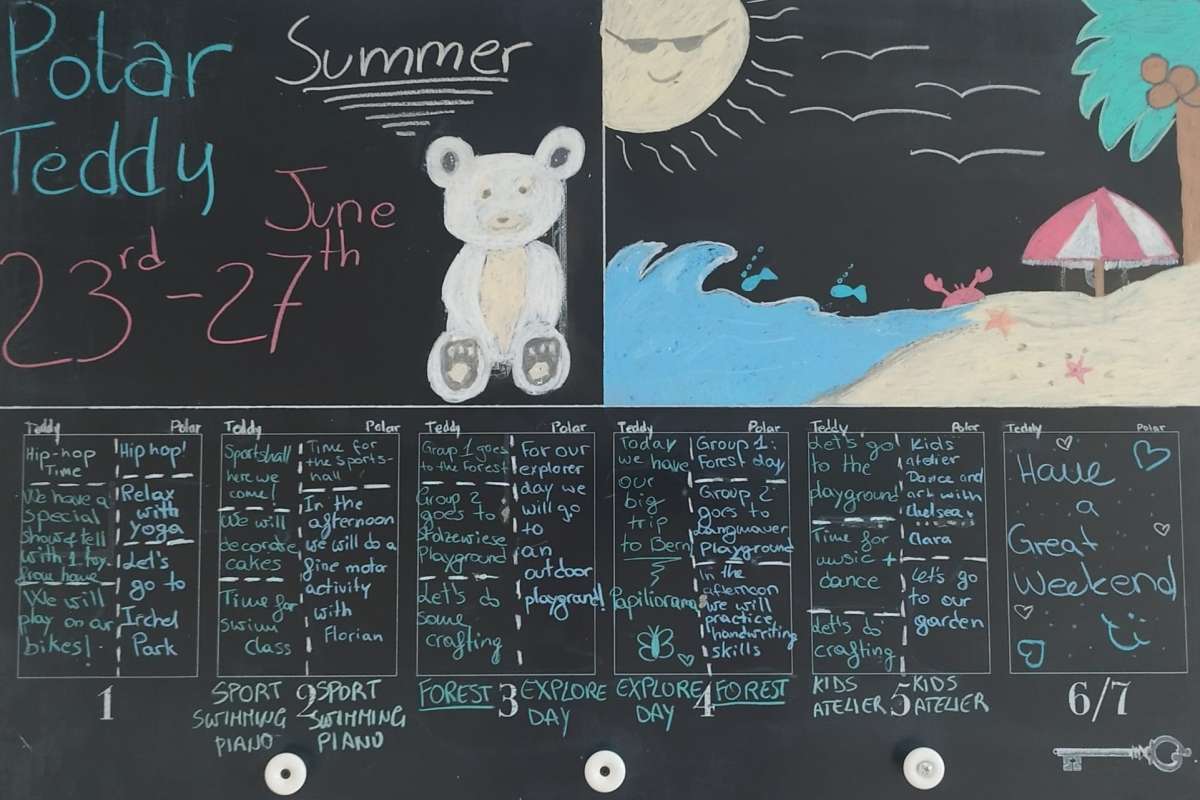 Polar
Teddy
Summer
June
23rd - 27th
Teddy Polar
Hip-hop
Time
We have a
special
show & tell
with 1 toy
from home
We will
play on our
bikes!
Hip hop!
Relax
with
yoga
Let's
go to
Irchel
Park
1
Teddy Polar
Sportshall
here we
come!
We will
decorate
cakes
Time for
swim
class
Time for
the Sports-
hall
In the
afternoon
we will do a
fine motor
activity
with
Florian
SPORT
SWIMMING
PIANO
2
SPORT
SWIMMING
PIANO
Teddy Polar
Group 1 goes
to the Forest
Group 2
goes to
Stolzewiese
Playground
Let's do
some
crafting
For our
explorer
day we
will go
to
an
outdoor
playground
FOREST
3
EXPLORE
DAY
Teddy Polar
Today
we have
our
big
trip
to Bern
Papiliorama
Group 1:
Forest day
Group 2:
goes to
playground
In the
afternoon
we will
practice
handwriting
skills
EXPLORE
DAY
4
FOREST
Teddy Polar
Let's go
to the
playground
Time for
music +
dance
Let's do
crafting
Kids
atelier
Dance and
art with
Chelsea +
Clara
Let's go
to our
garden
KIDS
ATELIER
5
KIDS
ATELIER
Teddy Polar
Have
a
Great
Weekend
6/7